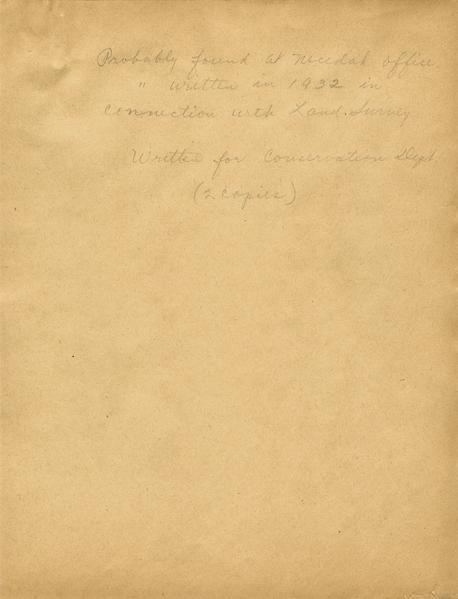 Probably found at Necedah office.
" written in 1932 in
connection with Land Survey
Written for Conservation Dept.
(2 copies)